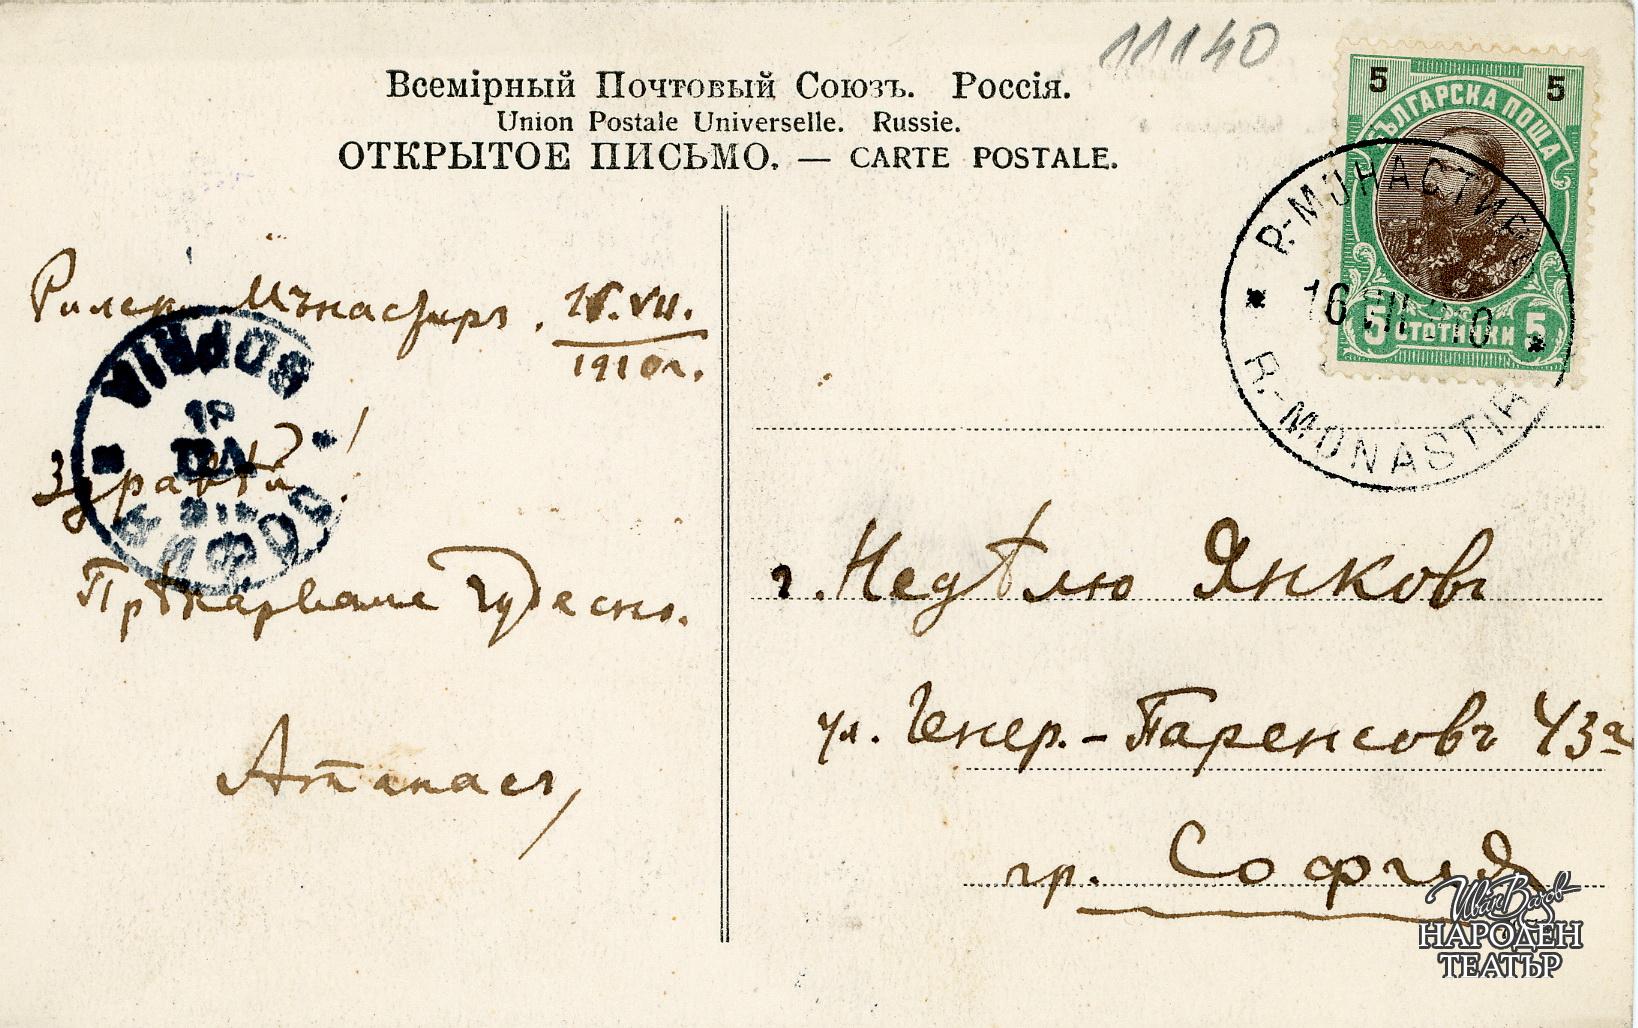 11140
Всемірный Почтовый Союзъ. Россія.
Union Postale Universelle. Russie.
ОТКРЫТОЕ ПИСЬМО. — CARTE POSTALE.
5 5
БЪЛГАРСКА ПОЩА
5 СТОТИНКИ 5
Р.-МОНАСТИРЪ
16 VII
R.-MONASTIR
Рилски Мънастиръ, VII.
1910 г.
SOFIA
VII
СОФИЯ
Здравѣй!
Прѣкарваме чудесно.
Атанасъ
г. Недѣлю Янковъ
ул. Генер.-Паренсовъ 43а
гр. София
Иван Вазов
НАРОДЕН
ТЕАТЪР